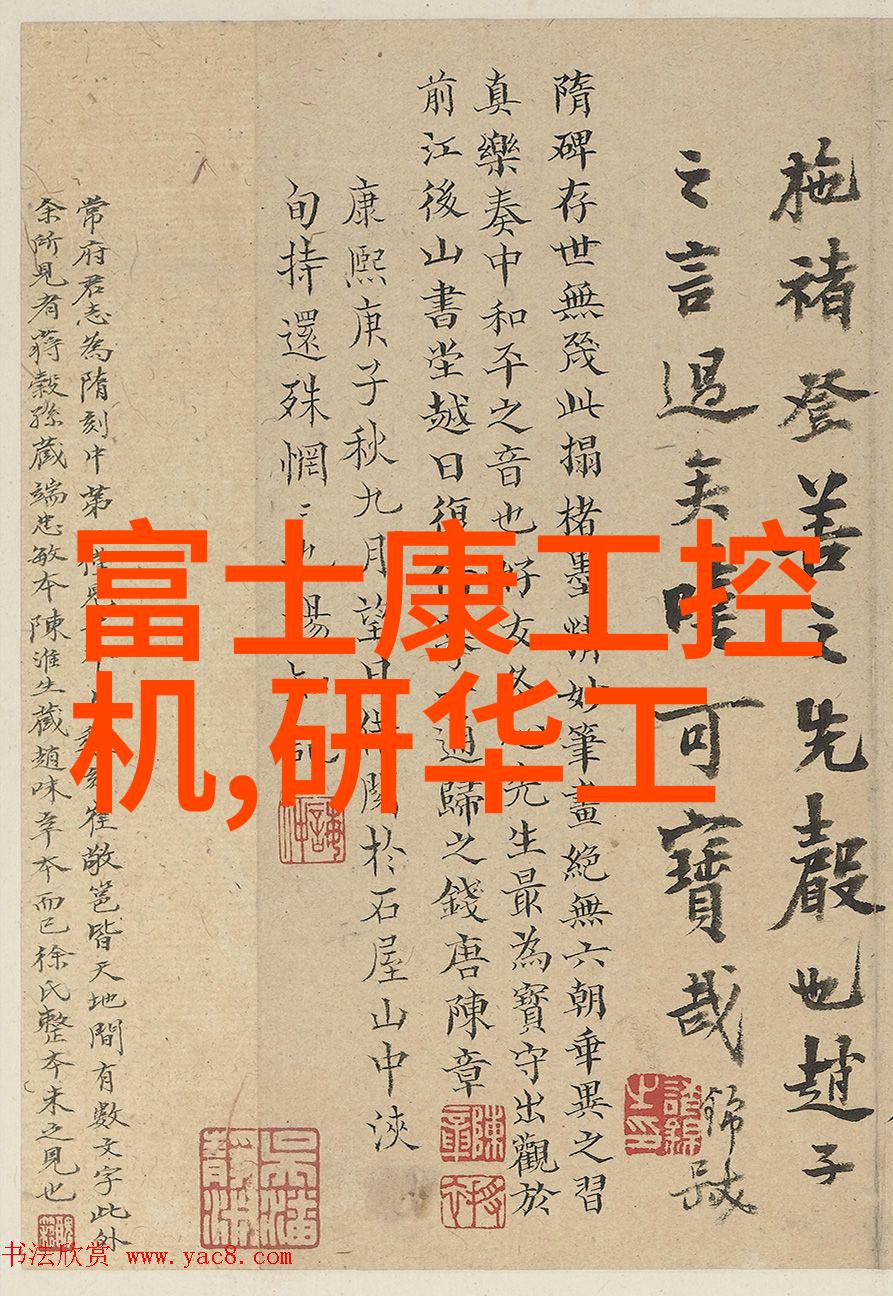 施褚登善之先聲也趙子
之言過矣 可寶哉
錦
隋碑存世無幾此搨楮墨精妙筆畫絕無六朝乖異之習
真樂奏中和平之音也好友 先生最為寶守出觀於
前江後山書堂越日復 通歸之錢唐陳章
康熙庚子秋九月望日 閱於石屋山中浹
旬持還殊惘
常府君志為隋刻中第 崔敬邕皆天地間有數文字此外
余所見有蔣穀孫藏端忠敏本陳淮生藏趙味辛本而已徐氏整本未之見也
富士康工控
机,研华工
书法欣赏 www.yac8.com